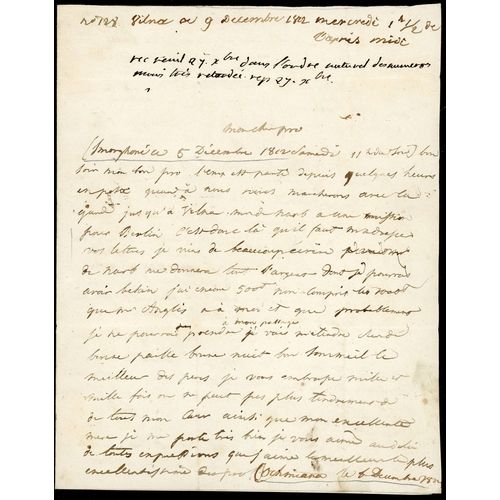 no 128. Vilna ce 9 Décembre 1812 mercredi 1h 1/2 de
l'après midi
rec reuil 27. xbre dans l'ordre naturel des numeros
mais très retardée rep 27. xbre.
mon cher pere
Smorghoné ce 5 Décembre 1812 Samedi 11h du soir bon
soir mon bon pere l'emp est parti depuis quelques heures
en poste quand à nous nous marcherons avec la
garde jusqu'à Vilna. mr de narb a une mission
pour Berlin c'est donc là qu'il faut m'adresser
vos lettres je viens de beaucoup écrire
de narb me donnera tout l'argent dont je pourrais
avoir besoin j'ai encore 500f non compris les
que mr Anglès a à moi et que probablement
je ne pourrai prendre à mon passage je vais m'étendre sur de
bonne paille bonne nuit bon sommeil le
meilleur des peres je vous embrasse mille et
mille fois on ne peut pas plus tendrement
de tout mon cœur ainsi que mon excellente
mere je me porte très bien je vous aime au delà
de toutes expressions que j'aime le meilleur le plus
excellent des peres Ochmiana ce 6 Décembre 1812